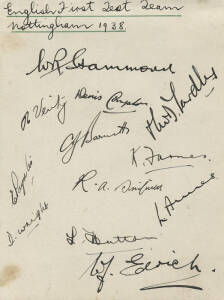 English First Test Team
Nottingham 1938.
W R Hammond
H Verity
Denis Compton
C J Barnett
K Farnes
R. A. Sinfield
L Ames
E Paynter
D. Wright
L Hutton
W J Edrich.